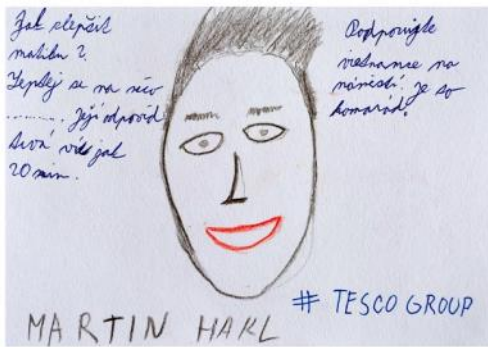 Jak slepčit
matiku?
Zeptej se na něco
......... Její odpověd
trvá víc jak
20 min.
Podporujte
vietnamce na
náměstí. Je to
komarád.
# TESCO GROUP
MARTIN HAKL